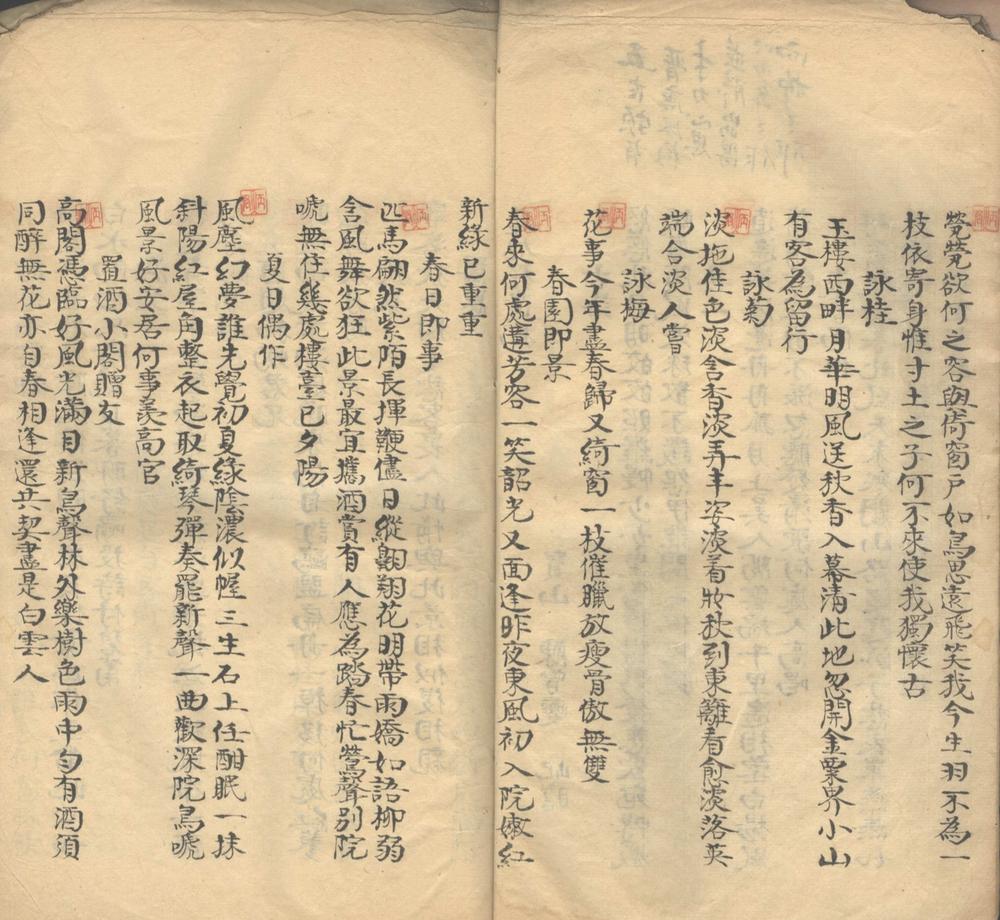 煢煢欲何之容與倚窗戶如鳥思遠飛笑我今生羽不為一
枝依寄身惟寸土之子何不來使我獨懷古
詠桂
玉樓西畔月華明風送秋香入幕清此地忽開金粟界小山
有客為留行
詠菊
淡拖佳色淡含香淡弄丰姿淡看妝秋到東籬看愈淡落英
端合淡人嘗
詠梅
花事今年盡春歸又綺窗一枝催臘放瘦骨傲無雙
春園即景
春來何處遘芳容一笑韶光又面逢昨夜東風初入院嫩紅
新綠已重重
春日即事
匹馬翩然紫陌長揮鞭儘日縱翱翔花明帶雨嬌如語柳弱
含風舞欲狂此景最宜攜酒賞有人應為踏春忙鶯聲別院
啼無住幾處樓臺已夕陽
夏日偶作
風塵幻夢誰先覺初夏綠陰濃似幄三生石上任酣眠一抹
斜陽紅屋角整衣起取綺琴彈奏罷新聲一曲歡深院鳥啼
風景好安居何事羨高官
置酒小閣贈友
高閣憑臨好風光滿目新鳥聲林外樂樹色雨中勻有酒須
同醉無花亦自春相逢還共契盡是白雲人